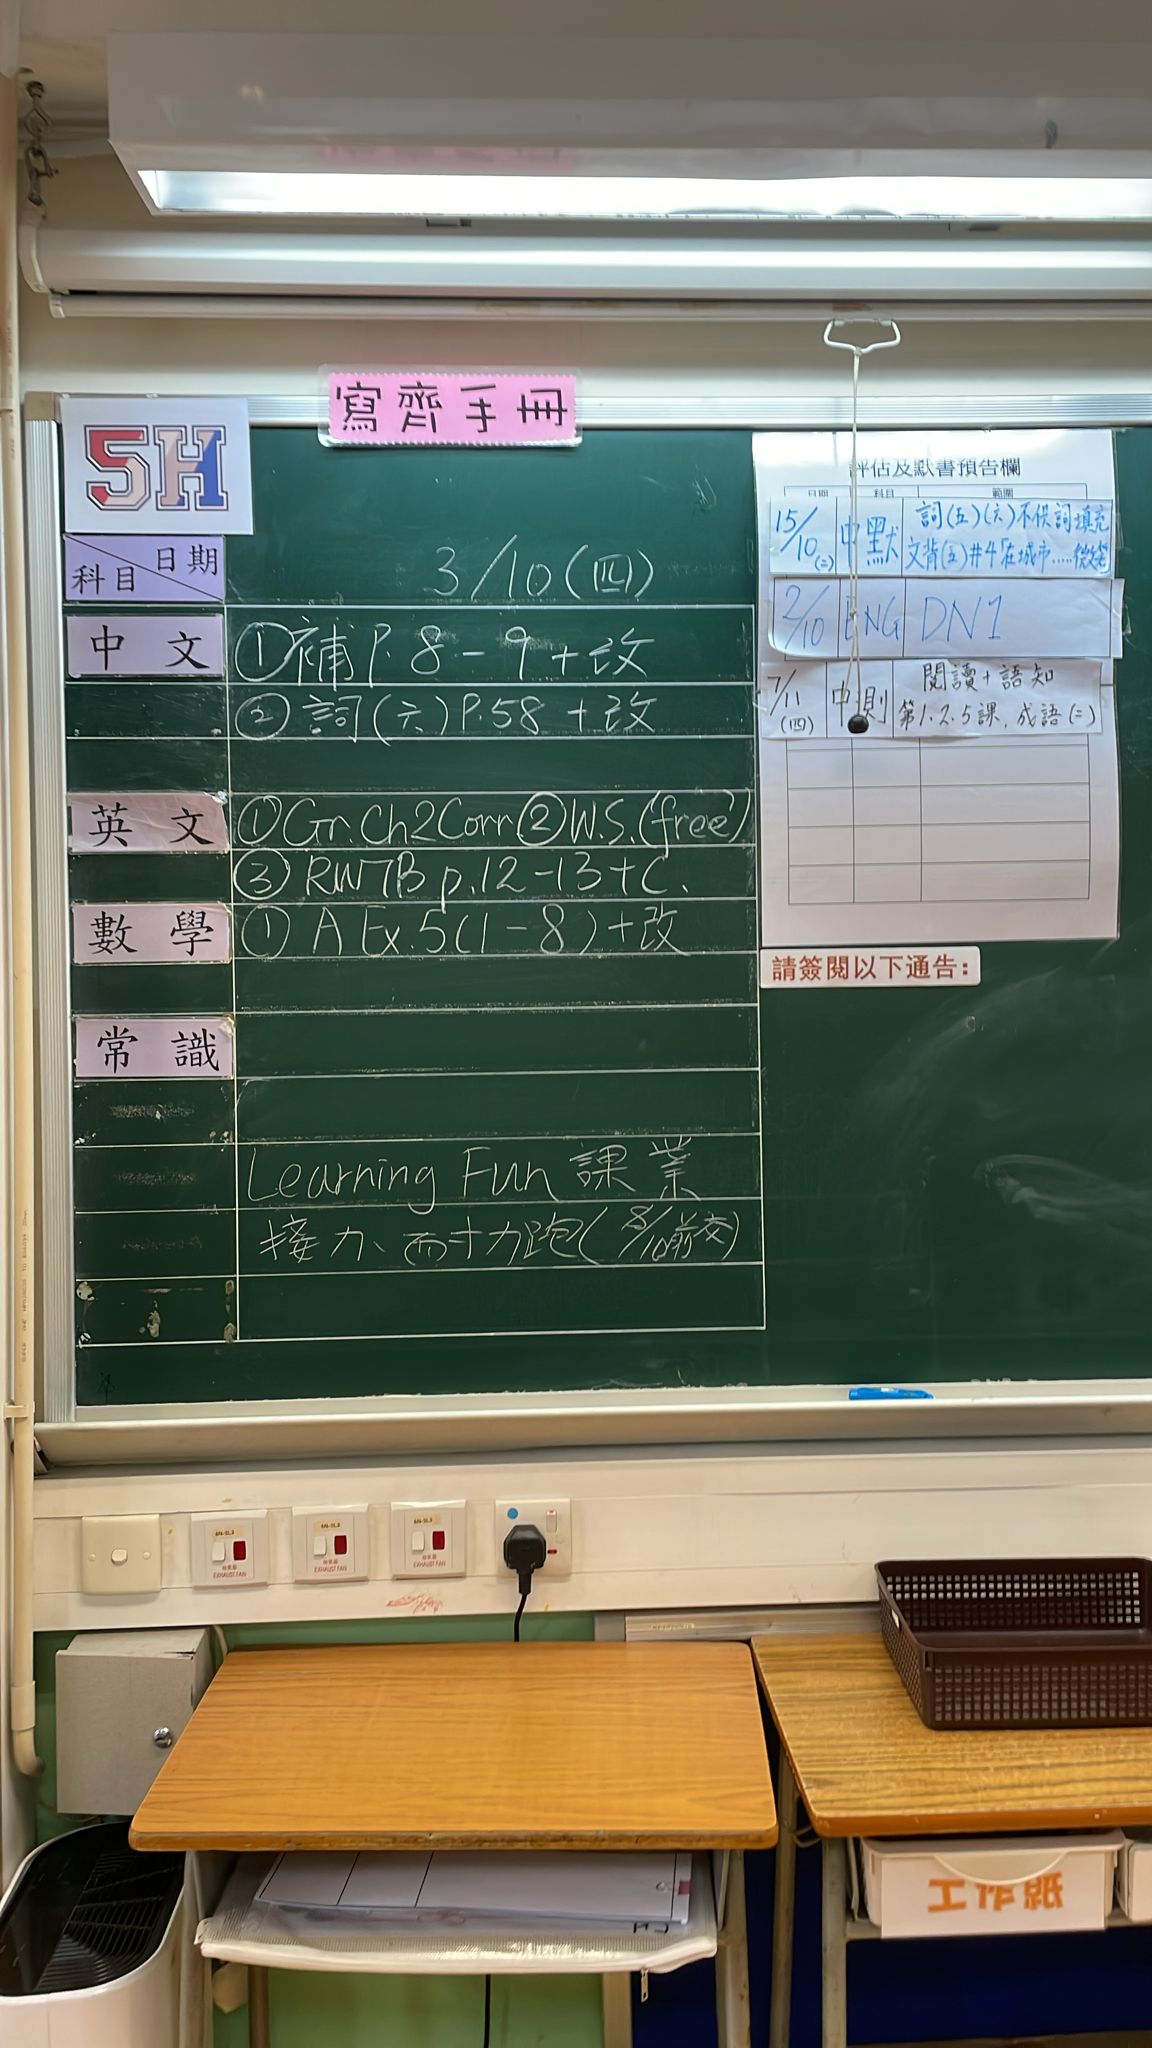 寫齊手冊
5H
日期
科目
3/10(四)
中文
①補P.8-9+改
②詞(六)P.58+改
英文
①Gr.Ch2Corr.②W.S.(free)
③RWTB p.12-13+C.
數學
①A Ex.5(1-8)+改
常識
Learning Fun 課業
接力、耐力跑(8/10前交)
評估及默書預告欄
日期 科目 範圍
15/10(二) 中默 詞(五)(六)不供詞填充
文背(五)#4「在城市.....微笑
2/10 ENG DN1
7/11(四) 中測 閱讀+語知
第1.2.5課,成語(二)
請簽閱以下通告:
EXHAUST FAN
EXHAUST FAN
EXHAUST FAN
工作紙